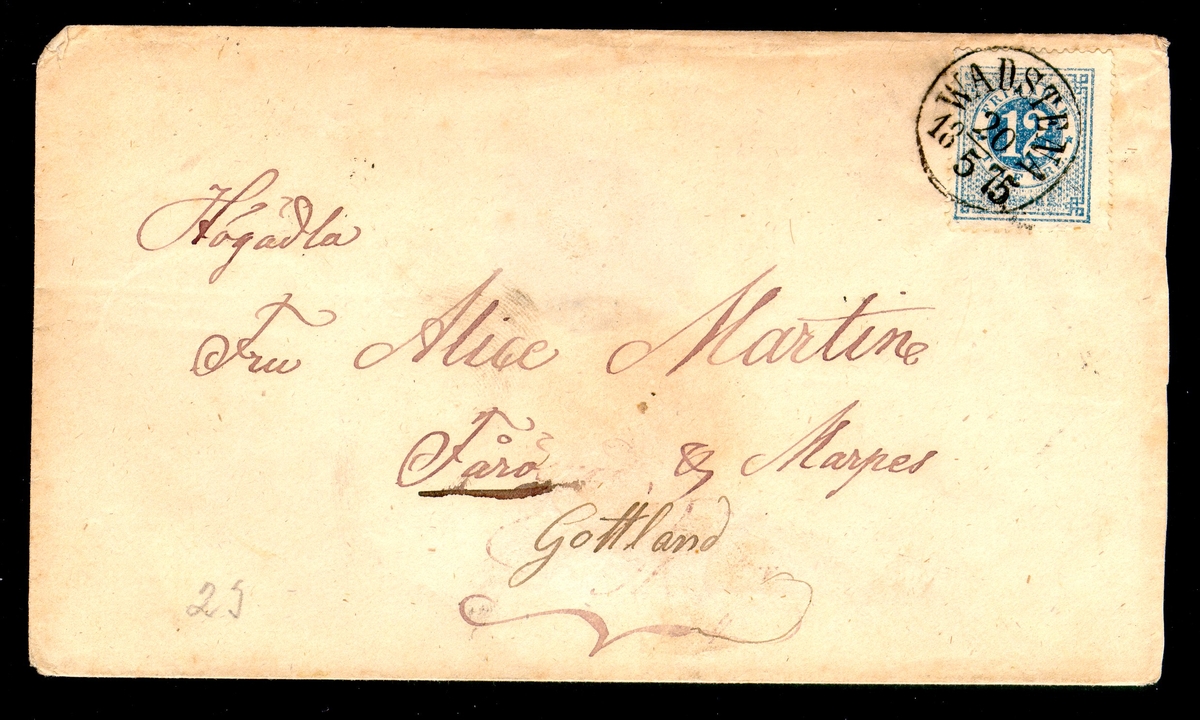 WADSTENA
20
5
18 75
12
Högädla
Fru Alice Martin
Fårö & Marpes
Gottland
25